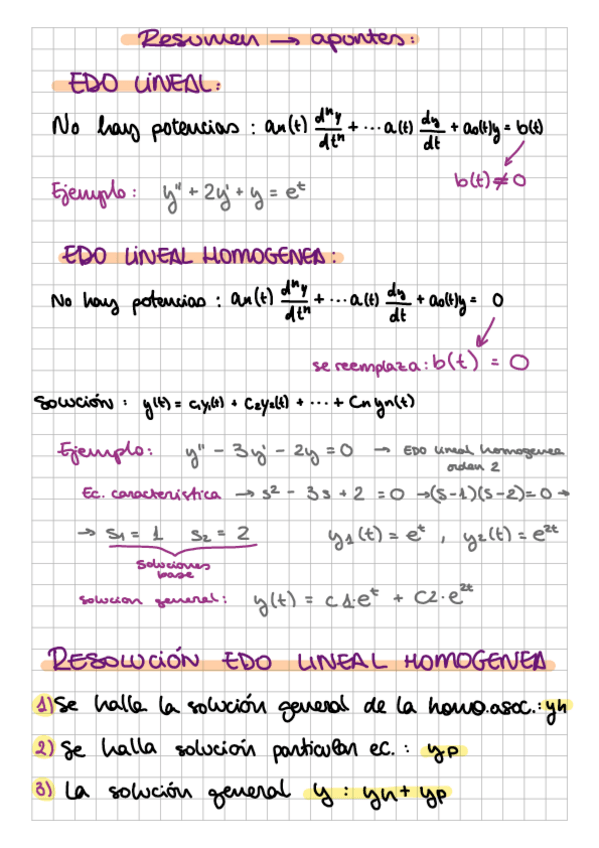 Resumen → apuntes:
EDO LINEAL:
No hay potencias : an(t) dⁿy/dtⁿ + ··· a(t) dy/dt + a0(t)y = b(t)
b(t) ≠ 0
Ejemplo: y'' + 2y' + y = eᵗ
EDO LINEAL HOMOGENEA:
No hay potencias : an(t) dⁿy/dtⁿ + ··· a(t) dy/dt + a0(t)y = 0
se reemplaza: b(t) = 0
Solución : y(t) = c1y1(t) + C2y2(t) + ··· + Cn yn(t)
Ejemplo: y'' - 3y' - 2y = 0 → EDO lineal homogenea
orden 2
Ec. característica → s² - 3s + 2 = 0 → (s-1)(s-2) = 0 →
→ s1 = 1 s2 = 2 y1(t) = eᵗ , y2(t) = e²ᵗ
soluciones
base
solucion general: y(t) = c1·eᵗ + C2·e²ᵗ
RESOLUCIÓN EDO LINEAL HOMOGENEA
1) Se halla la solución general de la homo.asoc.: yh
2) Se halla solución particular ec. : yp
3) La solución general y : yh + yp